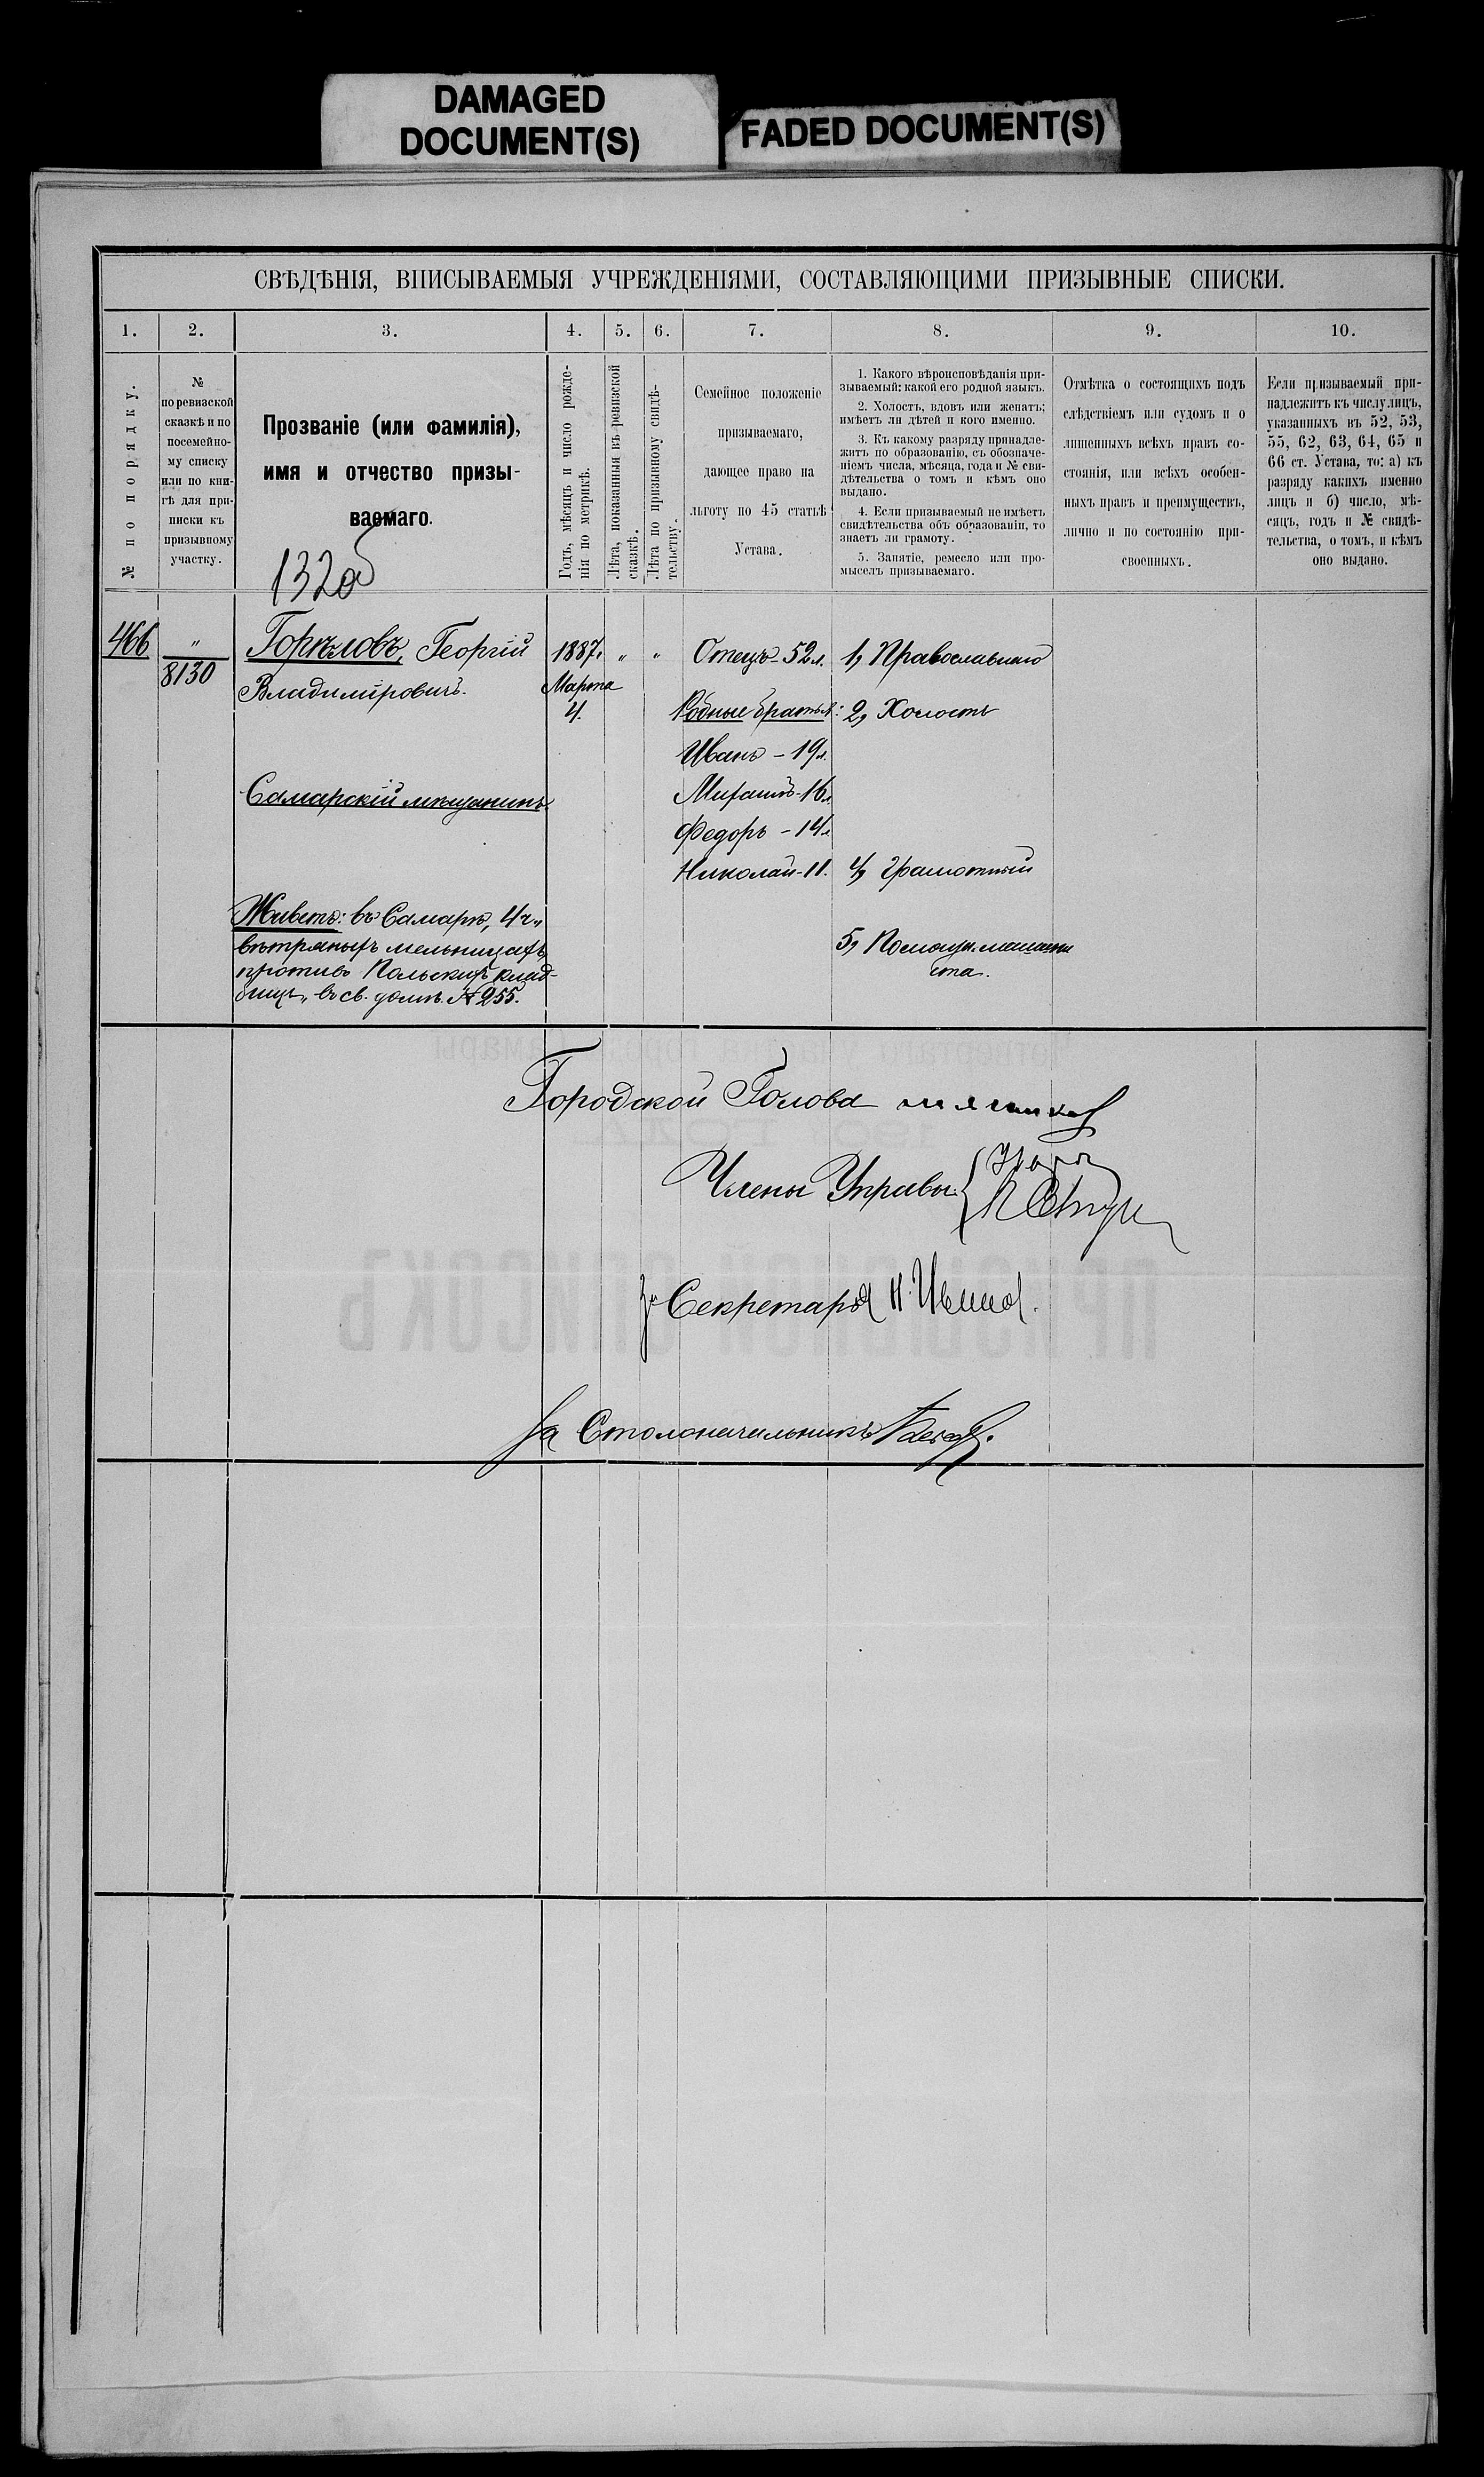 DAMAGED
DOCUMENT(S)
FADED DOCUMENT(S)
СВѢДѢНІЯ, ВПИСЫВАЕМЫЯ УЧРЕЖДЕНІЯМИ, СОСТАВЛЯЮЩИМИ ПРИЗЫВНЫЕ СПИСКИ.
1.
2.
3.
4.
5.
6.
7.
8.
9.
10.
№ по порядку.
№
по ревизской
сказкѣ и по
посемейно-
му списку
или по кни-
гѣ для при-
писки къ
призывному
участку.
Прозваніе (или фамилія),
имя и отчество призы-
ваемаго.
132
Годъ, мѣсяцъ и число рожде-
нія по метрикѣ.
Лѣта, показанныя въ ревизской
сказкѣ.
Лѣта по призывному свидѣ-
тельству.
Семейное положеніе
призываемаго,
дающее право на
льготу по 45 статьѣ
Устава.
1. Какого вѣроисповѣданія при-
зываемый; какой его родной языкъ.
2. Холостъ, вдовъ или женатъ;
имѣетъ ли дѣтей и кого именно.
3. Къ какому разряду принадле-
житъ по образованію, съ обозначе-
ніемъ числа, мѣсяца, года и № сви-
дѣтельства о томъ и кѣмъ оно
выдано.
4. Если призываемый не имѣетъ
свидѣтельства объ образованіи, то
знаетъ ли грамоту.
5. Занятіе, ремесло или про-
мыселъ призываемаго.
Отмѣтка о состоящихъ подъ
слѣдствіемъ или судомъ и о
лишенныхъ всѣхъ правъ со-
стоянія, или всѣхъ особен-
ныхъ правъ и преимуществъ,
лично и по состоянію при-
своенныхъ.
Если призываемый при-
надлежитъ къ числу лицъ,
указанныхъ въ 52, 53,
55, 62, 63, 64, 65 и
66 ст. Устава, то: а) къ
разряду какихъ именно
лицъ и б) число, мѣ-
сяцъ, годъ и № свидѣ-
тельства, о томъ, и кѣмъ
оно выдано.
466
"
8130
Горѣловъ, Георгій
Владиміровичъ.
Самарскій мѣщанинъ.
Живетъ: въ Самарѣ, 4 ч.,
вѣтряныхъ мельницахъ,
противъ Польскихъ клад-
бищъ, въ св. домѣ № 255.
1887.
Марта
4.
"
"
Отецъ - 52 л.
Родные братья:
Иванъ - 19 л.
Михаилъ - 16 л.
Федоръ - 14 л.
Николай - 11.
1, Православнаго
2, Холостъ
4, Грамотный
5, Помощн. машини
ста.
Городской Голова
Члены Управы
За Секретаря Н. Ивано
За Столоначальникъ